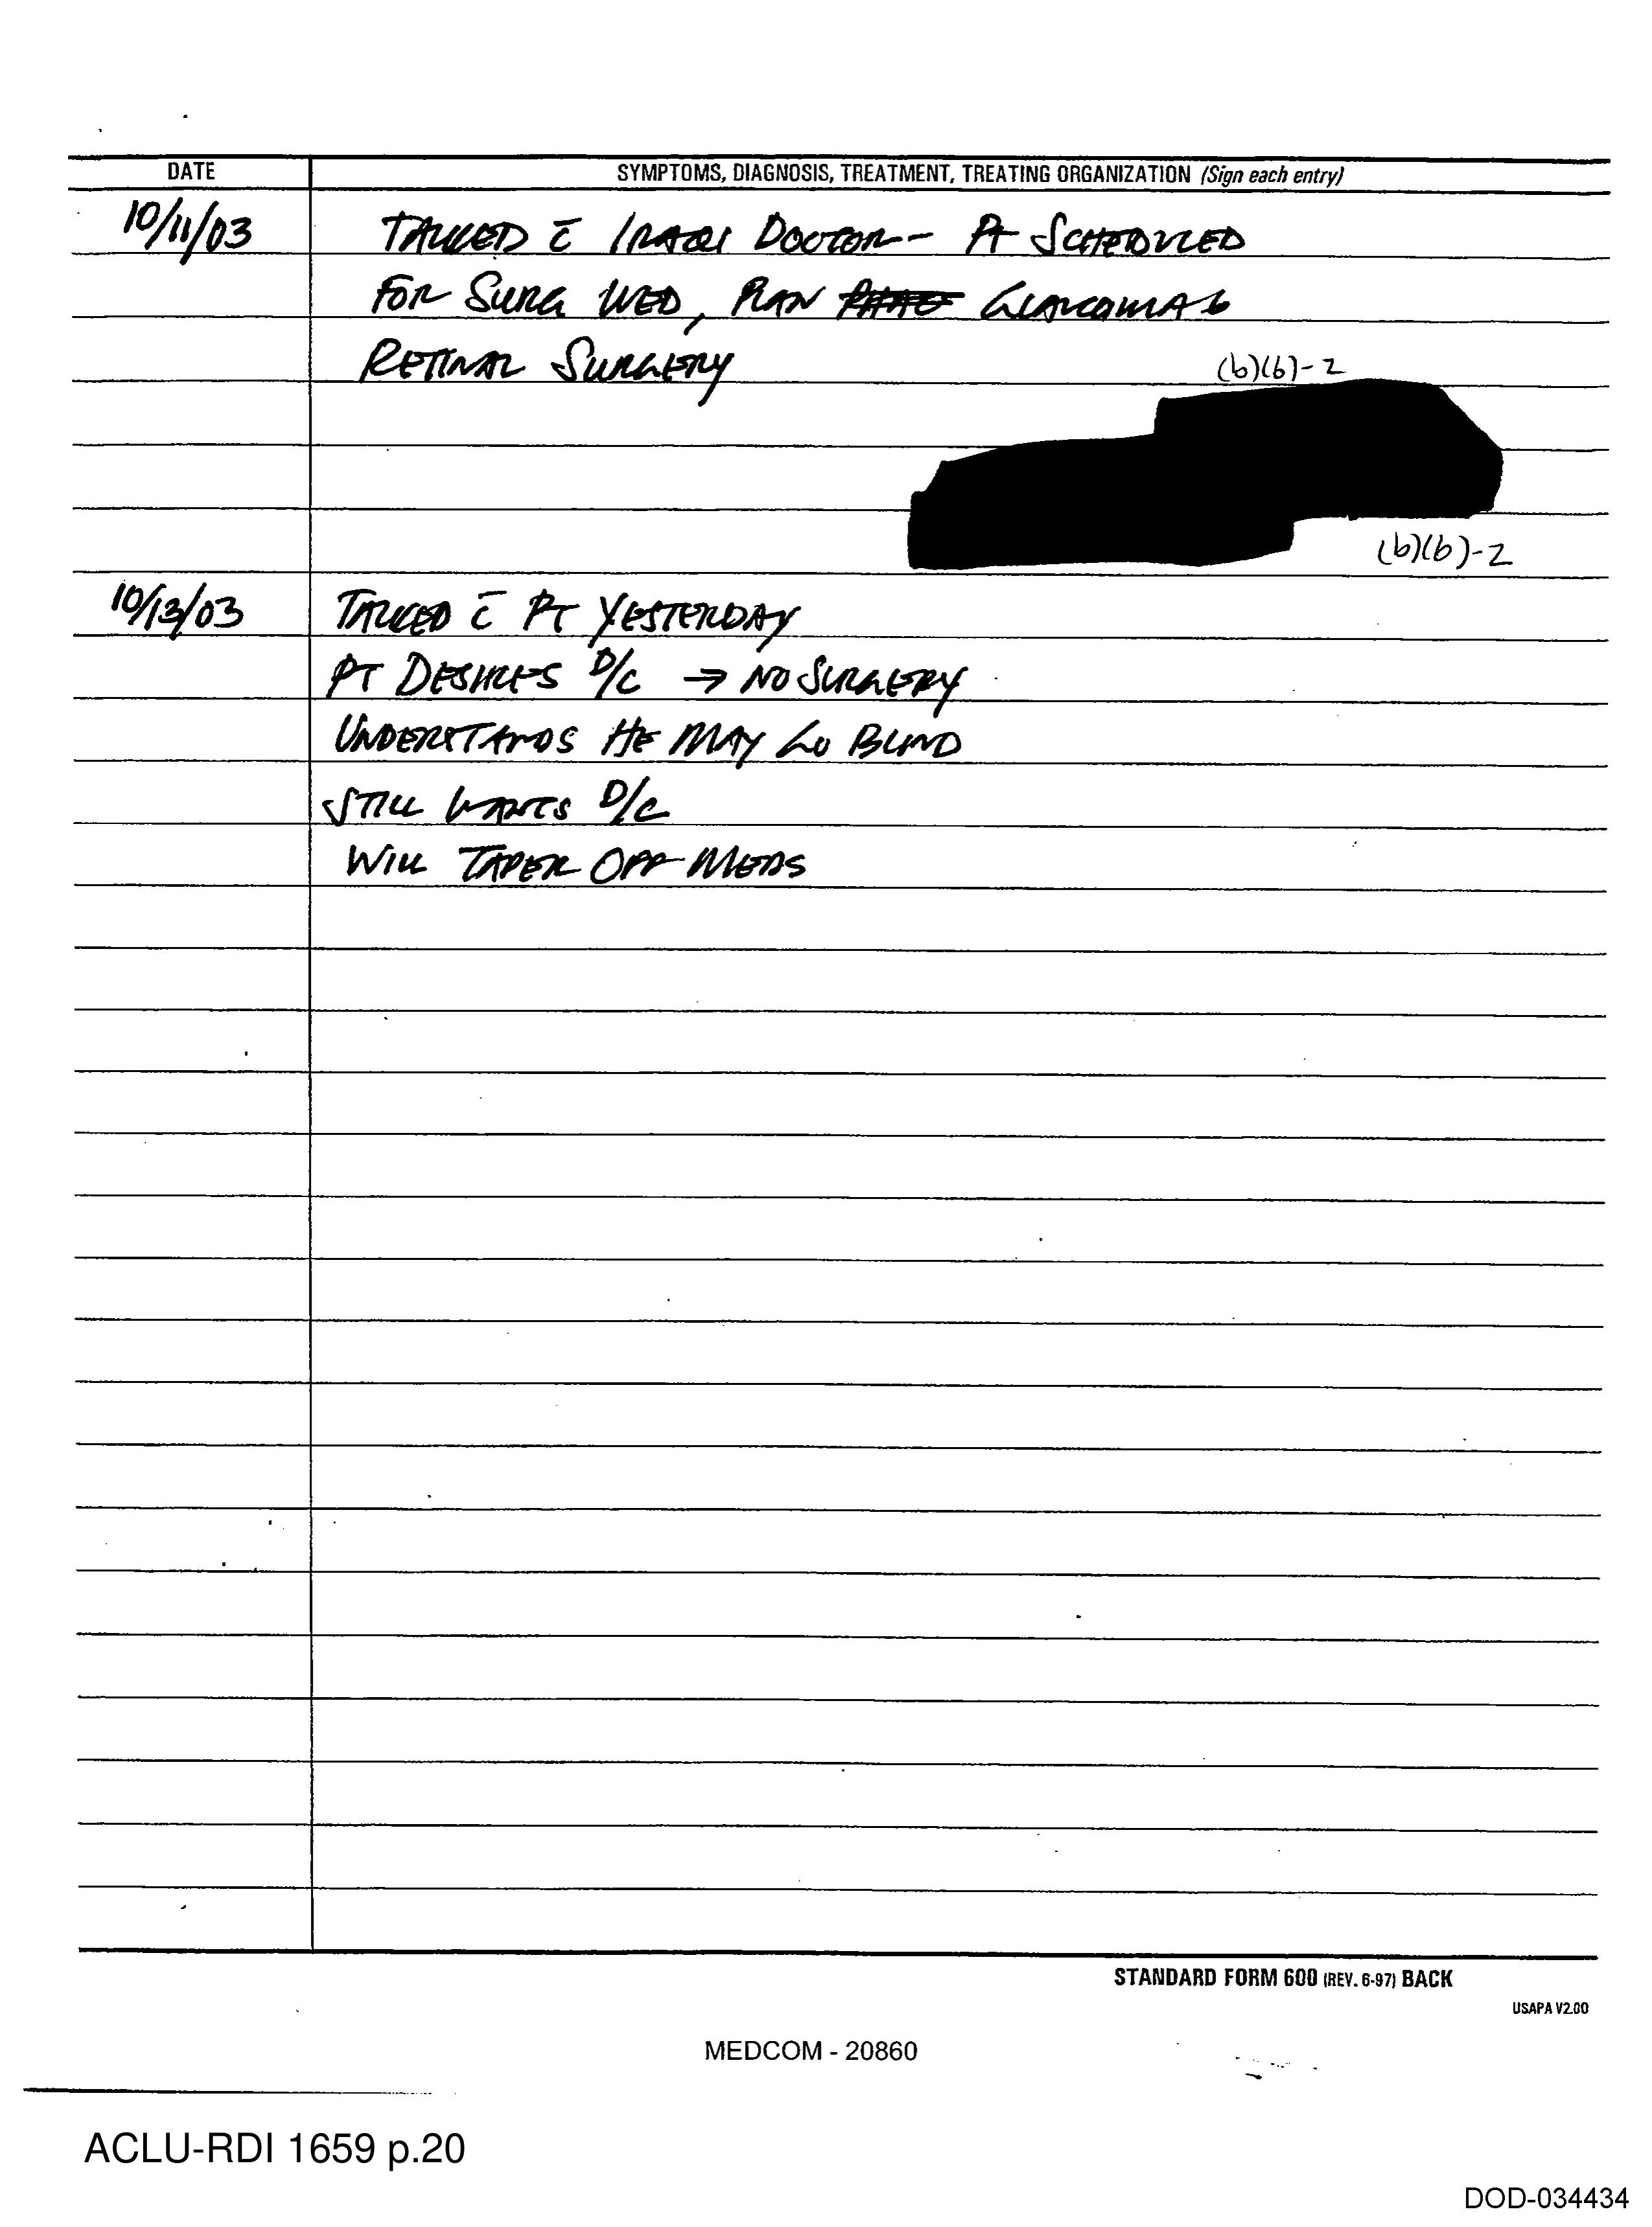 DATE SYMPTOMS, DIAGNOSIS, TREATMENT, TREATING ORGANIZATION (Sign each entry)
10/11/03 TALKED c̄ IRAQI DOCTOR - PT SCHEDULED
FOR SURG WED, PLAN GLAUCOMA &
RETINAL SURGERY
(b)(6)-2
(b)(6)-2
10/13/03 TALKED c̄ PT YESTERDAY
PT DESIRES D/C → NO SURGERY
UNDERSTANDS HE MAY GO BLIND
STILL WANTS D/C
WILL TAPER OFF MEDS
STANDARD FORM 600 (REV. 6-97) BACK
USAPA V2.00
MEDCOM - 20860
ACLU-RDI 1659 p.20
DOD-034434